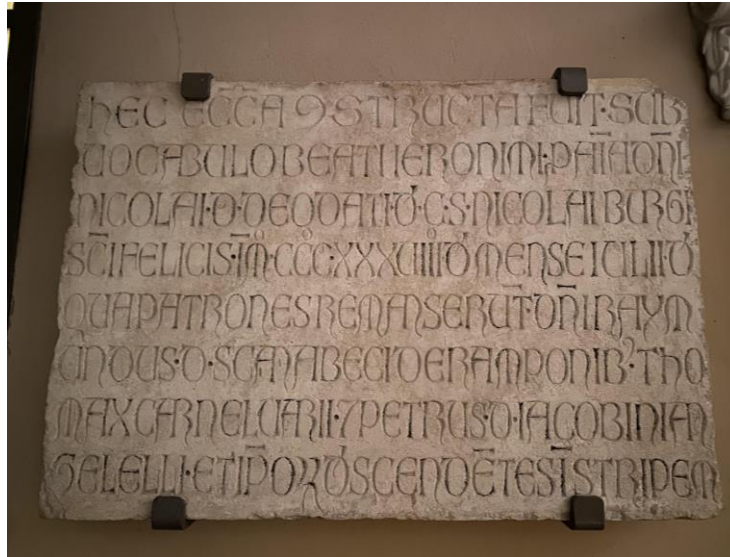 HEC ECC̄A 9STRUCTA FUIT·SUB
VOCABULO BEATI IERONIMI·P AĪĀ DN̄I
NICOLAI·D·DEODATI·D·C·S·NICOLAI BURGI
SC̄I FELICIS·Ī M̊·CCC̊·XXXVIIII D̄ MENSE IULII·D̄
QUA PATRONES REMANSERŪT·DN̄I RAYM
UNDUS·D·SCANABECI DE RAMPONIB'·THO
MAX CARNELVARII·7 PETRUS·D·IACOBINI AN
GELELLI·ET IP̄OꝜ D̄SCENDĒTES Ī STRIPEM